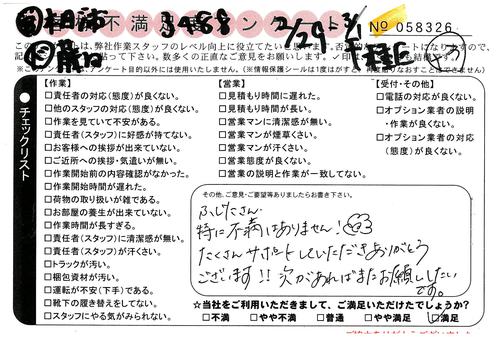 不満 アンケート
No 058326
2/29
チェックリスト
【作業】
□責任者の対応(態度)が良くない。
□他のスタッフの対応(態度)が良くない。
□作業を見ていて不安がある。
□責任者(スタッフ)に好感が持てない。
□お客様への挨拶が出来ていない。
□ご近所への挨拶・気遣いが無い。
□作業開始前の内容確認がなかった。
□作業開始時間が遅れた。
□荷物の取り扱いが雑である。
□お部屋の養生が出来ていない。
□作業時間が長すぎる。
□責任者(スタッフ)に清潔感が無い。
□責任者(スタッフ)が汗くさい。
□トラックが汚い。
□梱包資材が汚い。
□運転が不安(下手)である。
□靴下の履き替えをしてない。
□スタッフにやる気がみられない。
【営業】
□見積もり時間に遅れた。
□見積もり時間が長い。
□営業マンに清潔感が無い。
□営業マンが煙草くさい。
□営業マンが汗くさい。
□営業態度が良くない。
□営業の説明と作業が一致してない。
【受付・その他】
□電話の対応が良くない。
□オプション業者の説明
・作業が良くない。
□オプション業者の対応
(態度)が良くない。
その他、ご意見・ご要望等ありましたらお書き下さい。
ふじたさん
特に不満はありません!
たくさんサポートしていただきありがとう
ございます!!次があればまたお願いしたい
です。
☆当社をご利用いただきまして、ご満足いただけたでしょうか?
□不満 □やや不満 □普通 □やや満足 □満足